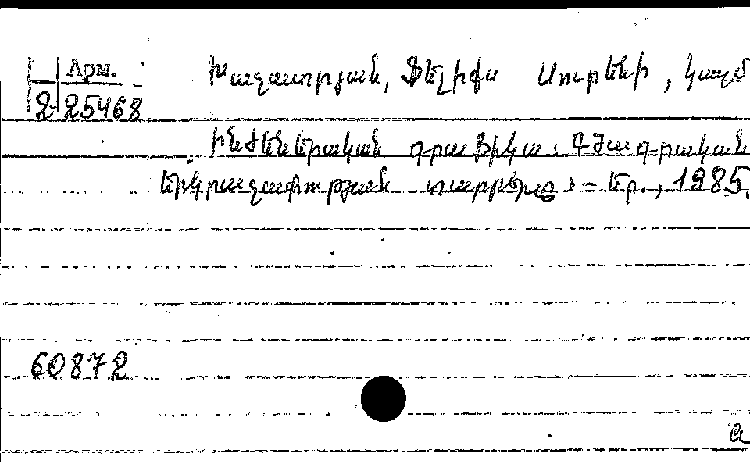 Арм.
2-25468
Խաչատրյան, Ֆելիքս Սուրենի, կազմ
Ինժեներական գրաֆիկա: Գծագրական
երկրաչափության տարրերը: – Եր., 1985.
60872